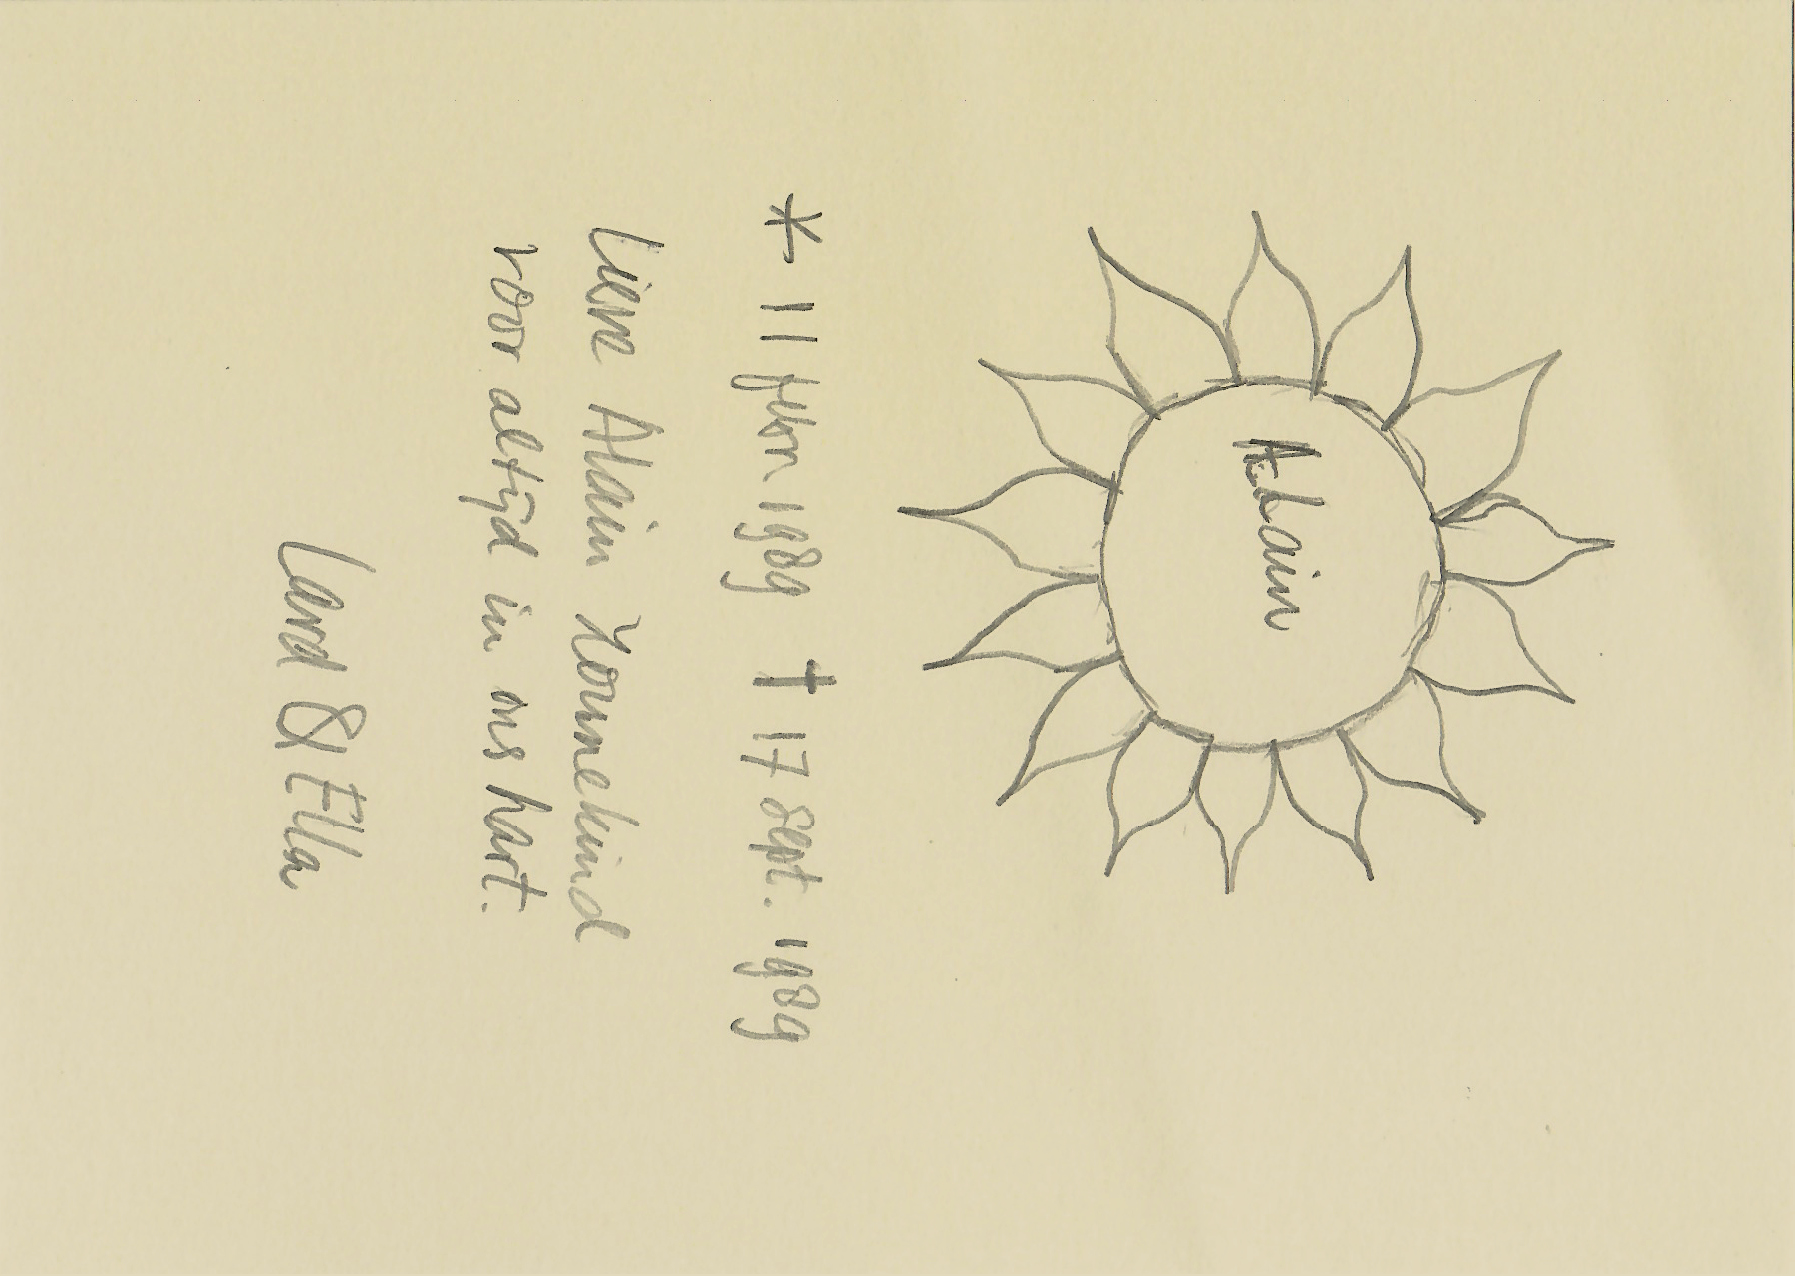 Alain
* 11 febr. 1989 † 17 sept. 1989
Lieve Alain Zonnekind
voor altijd in ons hart.
& Ella